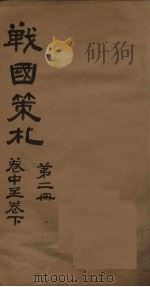 戰國策札
第二冊
卷中至卷下
mtoou.info